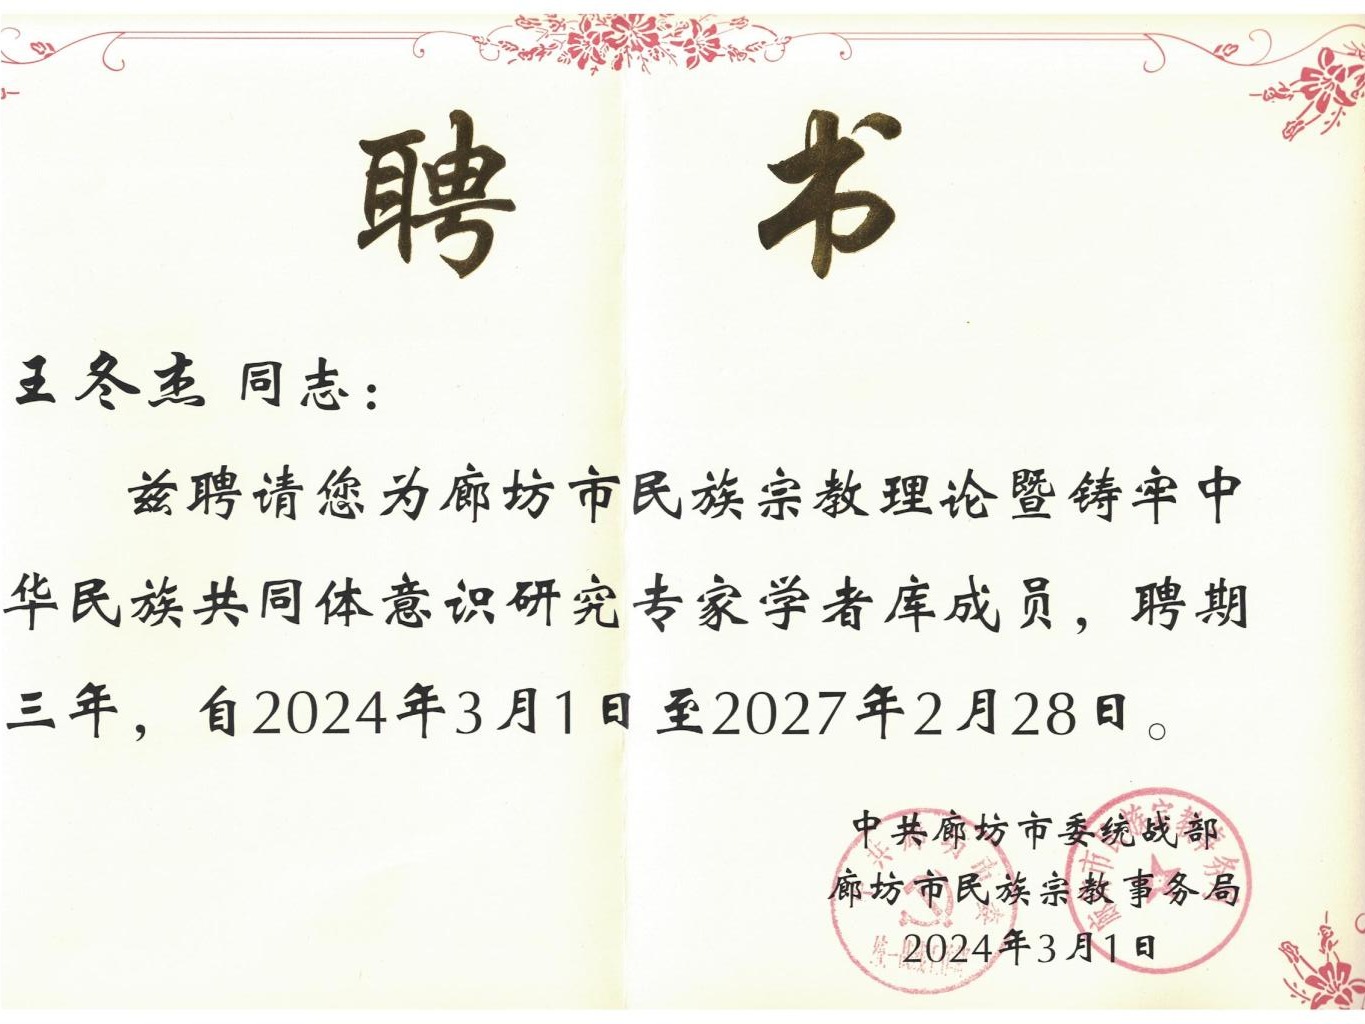 聘书
王冬杰 同志：
兹聘请您为廊坊市民族宗教理论暨铸牢中
华民族共同体意识研究专家学者库成员，聘期
三年，自2024年3月1日至2027年2月28日。
中共廊坊市委统战部
廊坊市民族宗教事务局
2024年3月1日